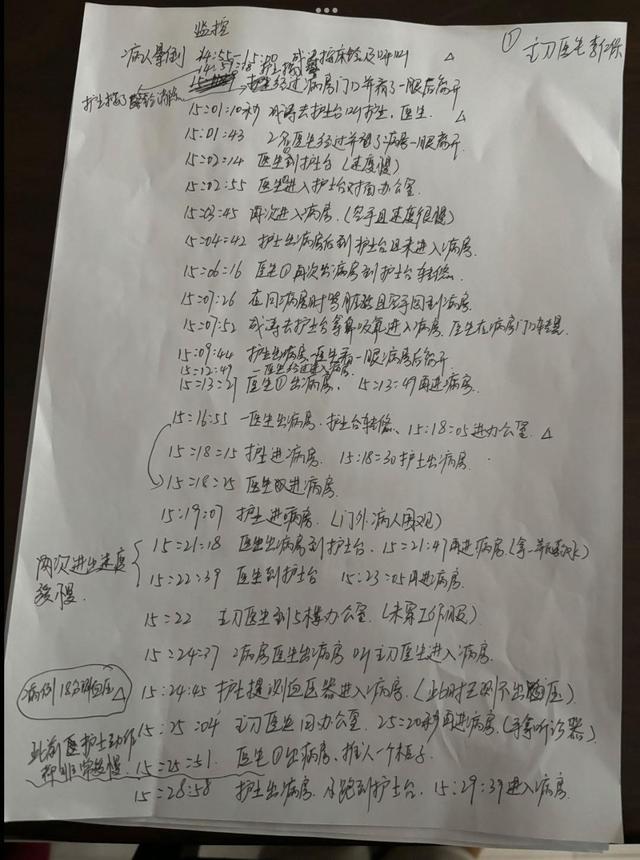 监控
① 主刀医生郭
病人晕倒 14:55-15:00 按床铃及呼叫 △
14:59:18 护士
护士经过病房门口并看了一眼后离开
护士按了 铃消除
15:01:10秒 去护士台叫护士,医生
15:01:43 2名医生经过并望了病房一眼离开.
15:02:14 医生到护士台(速度慢)
15:02:55 医生进入护士台对面办公室.
15:03:45 再次进入病房.(空手且速度很慢)
15:04:42 护士出病房后到护士台且未进入病房.
15:06:16 医生①再次出病房到护士台
15:07:26 在回病房时 且空手回到病房.
15:07:52 去护士台拿 进入病房 医生在病房门口
15:09:44 护士出病房 一医生看一眼病房后离开
15:12:49 一医生经过进入病房.
15:13:21 医生①出病房, 15:13:49再进病房.
15:16:55 一医生出病房,护士台 、15:18:05进办公室. △
15:18:15 护士进病房. 15:18:30护士出病房.
15:18:25 医生 进病房.
15:19:07 护士进病房.(门外病人围观)
两次进出速度缓慢.
15:21:18 医生出病房到护士台. 15:21:47再进病房(拿一 水)
15:22:39 医生到护士台 15:23:05再进病房.
15:22 主刀医生到5楼办公室.(未穿工作服)
15:24:37 病房医生出病房叫主刀医生进入病房.
病例18分 血压 △
15:24:45 护士提测血压器进入病房.(此时已测不出血压)
15:25:04 主刀医生回办公室. 25:20秒再进病房.(手拿听诊器)
此前医护士动作都非常缓慢.
15:25:51. 医生①出病房,推入一个柜子.
15:28:58 护士出病房.小跑到护士台. 15:29:39进入病房.